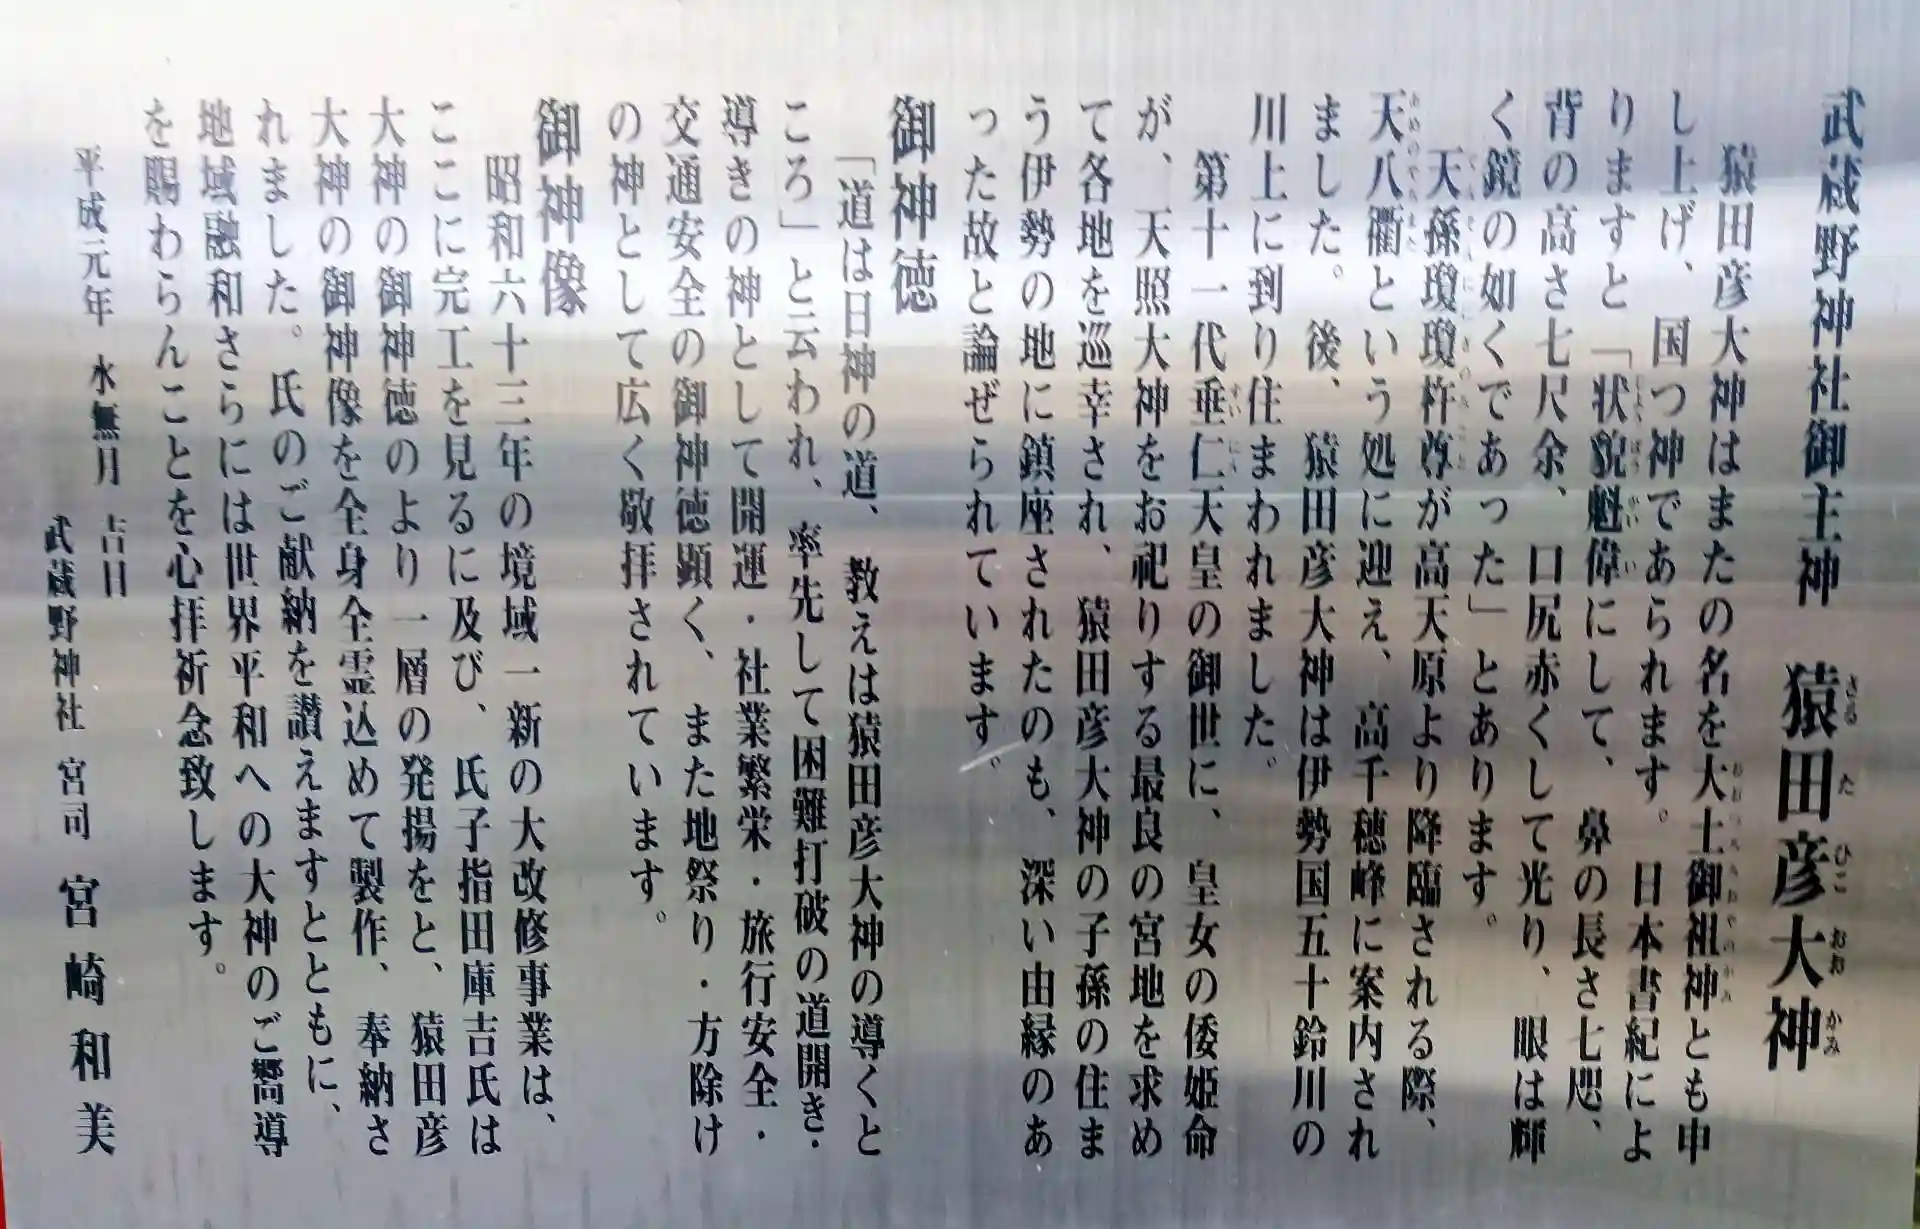 武蔵野神社御主神　猿田彦大神
猿田彦大神はまたの名を大土御祖神とも申
し上げ、国つ神であられます。日本書紀によ
りますと「状貌魁偉にして、鼻の長さ七咫、
背の高さ七尺余、口尻赤くして光り、眼は輝
く鏡の如くであった」とあります。
天孫瓊瓊杵尊が高天原より降臨される際、
天八衢という処に迎え、高千穂峰に案内され
ました。後、猿田彦大神は伊勢国五十鈴川の
川上に到り住まわれました。
第十一代垂仁天皇の御世に、皇女の倭姫命
が、天照大神をお祀りする最良の宮地を求め
て各地を巡幸され、猿田彦大神の子孫の住ま
う伊勢の地に鎮座されたのも、深い由縁のあ
った故と論ぜられています。
御神徳
「道は日神の道、教えは猿田彦大神の導くと
ころ」と云われ、率先して困難打破の道開き・
導きの神として開運・社業繁栄・旅行安全・
交通安全の御神徳顕く、また地祭り・方除け
の神として広く敬拝されています。
御神像
昭和六十三年の境域一新の大改修事業は、
ここに完工を見るに及び、氏子指田庫吉氏は
大神の御神徳のより一層の発揚をと、猿田彦
大神の御神像を全身全霊込めて製作、奉納さ
れました。氏のご献納を讃えますとともに、
地域融和さらには世界平和への大神のご嚮導
を賜わらんことを心拝祈念致します。
平成元年　水無月　吉日
武蔵野神社　宮司　宮崎和美